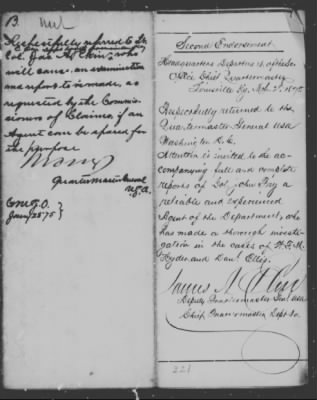 13.
Respectfully referred to Lt.
Col. Jas. A. Ekin, who
will cause an examination
and report to be made, as
requested by the Commis-
sioners of Claims, if an
Agent can be spared for
the purpose
Quartermaster General
U.S.A.
Q.M.G.O.
Jany 28 75
Second Endorsement
Headquarters Department of the
Office Chief Quartermaster
Louisville Ky. 1875
Respectfully returned to the
Quartermaster General USA
Washington D.C.
Attention is invited to the ac-
companying full and complete
reports of John Fry a
reliable and experienced
Agent of the Department, who
has made a thorough investi-
gation in the cases of
Hyder and Danl. Ellis.
James A. Ekin
Deputy Quartermaster Genl. USA
Chief Quartermaster Dept. So.
221